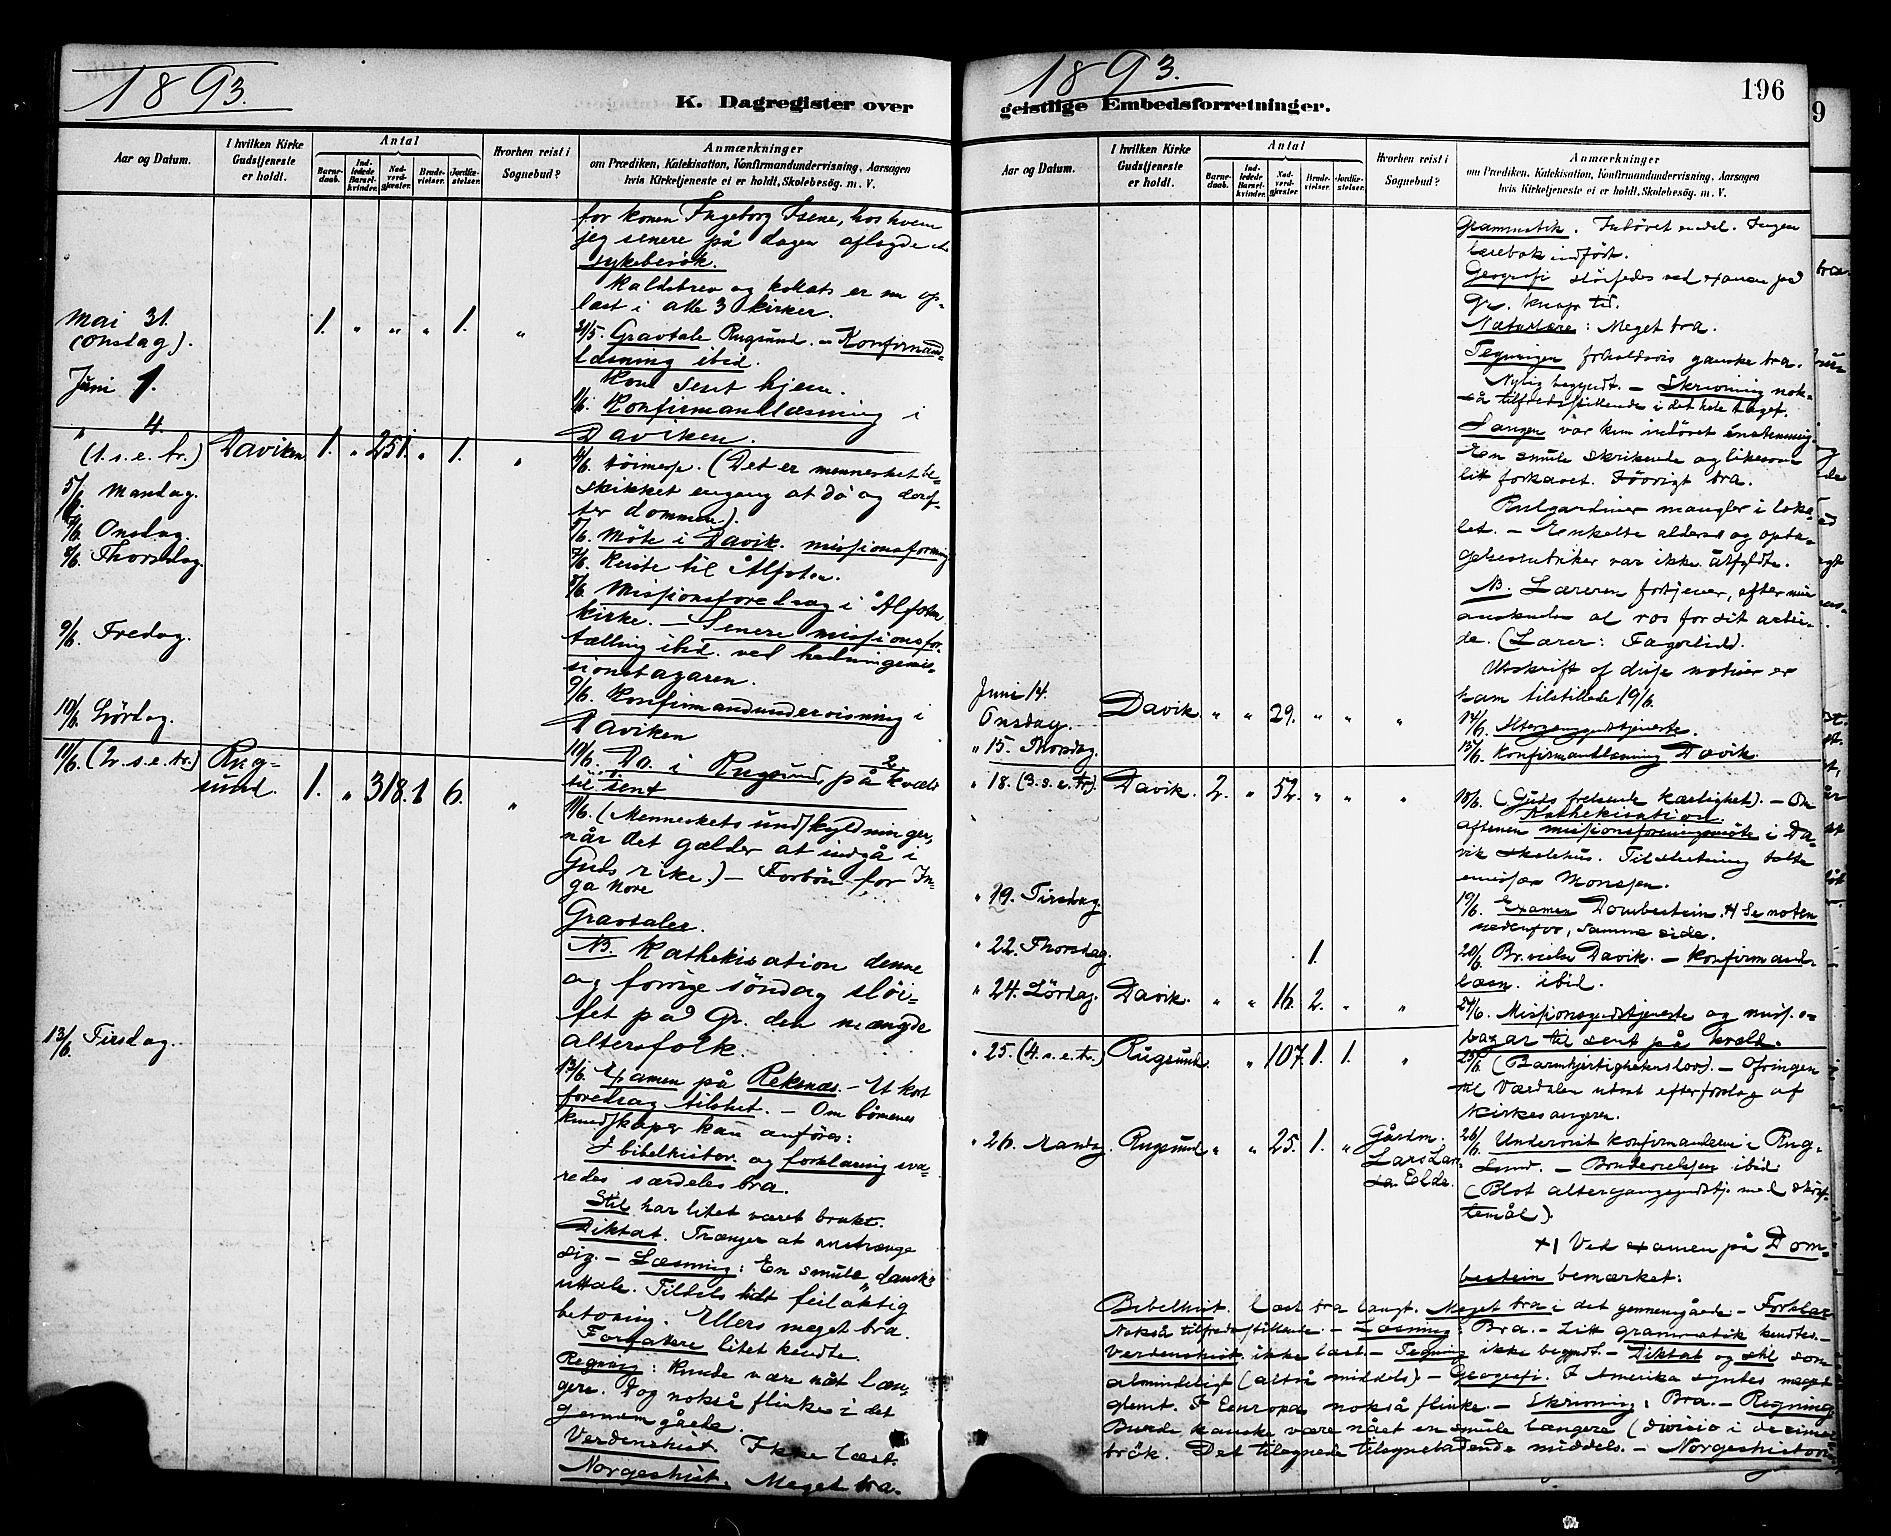 1893.
K. Dagregister over
Aar og Datum.
I hvilken Kirke Gudstjeneste er holdt.
Antal
Barne-daab.
Ind-ledede Barsel-kvinder.
Nad-verd-gjester.
Brude-vielser.
Jordfæ-stelser.
Hvorhen reist i Sognebud?
Anmærkninger
om Prædiken, Katekisation, Konfirmandundervisning, Aarsagen
hvis Kirketjeneste ei er holdt, Skolebesög. m. V.
for konen Ingeborg Isene, hos hvem
jeg senere på dagen aflagde et
sykebesök.
Kaldsbrev og kollats er nu op-
læst i alle 3 kirker.
Mai 31. 1. " " " 1. " 31/5. Gravtale Rugsund. – Konfirmand-
(Onsdag). læsning ibid.
Juni 1. Kom sent hjem.
1/6. Konfirmandlæsning i
" 4. Daviken.
(1. s. e. tr.) Daviken 1. " 251. " 1. " 4/6. Höimesse. (Det er mennesket be-
5/6 Mandag. skikket engang at dö og deref-
ter dommen).
7/6 Onsdag. 5/6. Möte i Davik missionsforening
8/6 Thorsdag. 7/6. Reiste til Ålfoten.
8/6. Missionsforedrag i Ålfoten
kirke. – Senere missionsfor-
9/6 Fredag. tælling ibid. ved hedningemis-
sionsbazaren.
9/6. Konfirmandundervisning i
10/6 Lördag. Daviken
11/6 (2. s. e. tr.) Rug- 10/6. Do. i Rugsund på kveld
sund. 1. " 318. 1 6. " til sent
11/6. (Menneskets undskyldninger,
når det gælder at indgå i
Guds rike.) – Forbön for In-
ga Nore
Gravtaler.
NB. Kathekisation denne
og forrige söndag slöi-
fet på Gr. den mængde
altersfolk.
13/6 Tirsdag. 13/6. Examen på Reksnæs. – Et kort
foredrag tilslut. – Om börnenes
kundskaper kan anföres:
I bibelhistor. og forklaring sva-
redes særdeles bra.
Stil har litet været brukt.
Diktat. Trænger at anstrænge
sig. – Læsning: En smule "dansk"
uttale. Tildels lidt feilaktig
betoning. Ellers meget bra.
Forfattere litet kendte.
Regning: Kunde være nåt læn-
gere. Dog nokså flinke i det
gennemgåede.
Verdenshist. Ikke læst.
Norgeshist. Meget bra.
1893.
geistlige Embedsforretninger.
196
9
Aar og Datum.
I hvilken Kirke Gudstjeneste er holdt.
Antal
Barne-daab.
Ind-ledede Barsel-kvinder.
Nad-verd-gjester.
Brude-vielser.
Jordfæ-stelser.
Hvorhen reist i Sognebud?
Anmærkninger
om Prædiken, Katekisation, Konfirmandundervisning, Aarsagen
hvis Kirketjeneste ei er holdt, Skolebesög. m. V.
Grammatik. Indövet endel. Ingen
lærebok indfört.
Geografi slöifedes ved examen på
Gr. knap tid.
Naturlære: Meget bra.
Tegninger forholdsvis ganske bra.
Nylig begyndt. – Skrivning nok-
så tilfredsstillende i det hele taget.
Sangen var kun indövet enstemmig.
En smule skrikende og likesom
litt forkavet. Iövrigt bra.
Rulgardiner mangler i loka-
let. – Enkelte alders og opta-
gelsesrubriker var ikke utfyldte.
NB. Læreren fortjener, efter min
anskuelse al ros for sit arbei-
de. (Lærer: Fagerlid).
Utskrift af disse notiser er
ham tilstillede 19/6.
Juni 14. Onsdag. Davik " " 29. " " " 14/6. Altergangsgudstjeneste.
" 15. Thorsdag. 15/6. Konfirmandlæsning Davik
" 18. (3. s. e. tr.) Davik. 2. " 52. " " " 18/6. (Guds frelsende kærlighet). – Om
Kathekisation
aftenen missionsforeningsmöte i Da-
vik skolehus. Tilslutning talte
emissær Monssen.
" 19. Tirsdag. 19/6. Examen Dombestein. +) Se noten
nedenfor, samme side.
" 22. Thorsdag. 1. 20/6. Br.vielse Davik. – Konfirmand-
læsn. ibid.
" 24. Lördag. Davik. " " 16. 2. " " 24/6. Missionsgudstjeneste og miss.s-
bazar til sent på kveld.
" 25. (4. s. e. tr.) Rugsund. " 107. 1. 1. " 25/6. (Barmhjertighetens lov). – Ofringen
til Værdalen utsat efter forslag af
kirkesangeren.
" 26. Mandag. Rugsund " " 25. 1. " Gårdm. Lars Lar-sen Elde. 26/6. Undervist konfirmanderne i Rug-
sund. – Brudevielsen ibid.
(Blot altergangsgudstj. med skrif-
temål).
+) Ved examen på Dom-
bestein bemærket:
Bibelhist. Læst bra langt. Meget bra i det gennemgåede – Forklar.
Nokså tilfredsstillende. – Læsning: Bra. – Litt grammatik kendtes. –
Verdenshist. ikke læst. – Tegning ikke begyndt. – Diktat og stil som
almindeligt (altså middels) – Geografi. I Amerika syntes meget
glemt. I Europa nokså flinke. – Skrivning: Bra. – Regning.
Burde kanske være nået en smule længere (divisio i decimal
brök. Det tilegnede tilegnet udende middels. – Norgeshistorie